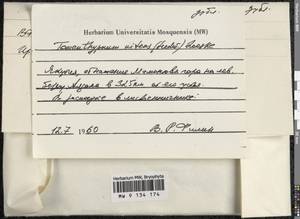 дубл. дубл.
Herbarium Universitatis Mosquensis (MW)
Tomenthypnum nitens (Hedw.) Loeske
Якутия, обнажение Мамонтова гора на лев.
берегу Алдана в 325 км от его устья.
в лиственничнике
12.7 1960 В. Р. Филин
Herbarium MW, Bryophyta
MW 9 134 174